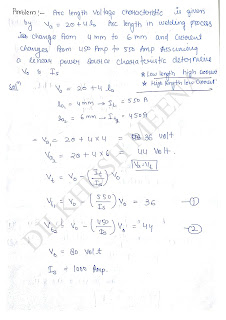 Problem:- Arc length voltage characteristic is given
by V₀ = 20 + 4 la Arc length in welding process
is change from 4 mm to 6 mm and current
changes from 450 Amp to 550 Amp Assuming
a linear power source characteristic determine
V₀ & Is
* Low length high current
* High length low current
Solⁿ V₀ = 20 + 4 la
la = 4mm → Ia = 550 A
la = 6mm → Ia = 450A
V₀ = 20 + 4 × 4 = 36 volt
V₀ = 20 + 4 × 6 44 volt.
V₀ = Vt
Vt = V₀ - (It/Is) V₀
Vt₁ = V₀ - (550/Is) V₀ = 36 ①
Vt₂ = V₀ - (450/Is) V₀ = 44 ②
V₀ = 80 volt
Is = 1000 Amp.
DILKHUSH MEENA